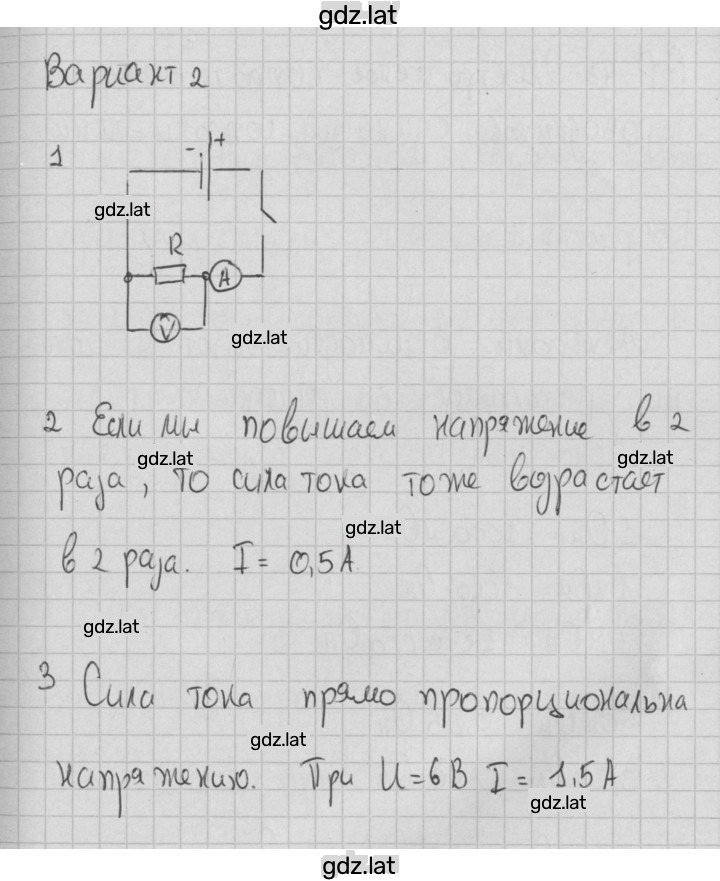 gdz.lat
Вариант 2
1
- +
gdz.lat
R
A
V
gdz.lat
2 Если мы повышаем напряжение в 2
gdz.lat gdz.lat
раза, то сила тока тоже возрастает
gdz.lat
в 2 раза. I = 0,5 А
gdz.lat
3 Сила тока прямо пропорциональна
gdz.lat
напряжению. При U = 6 В I = 1,5 А
gdz.lat
gdz.lat